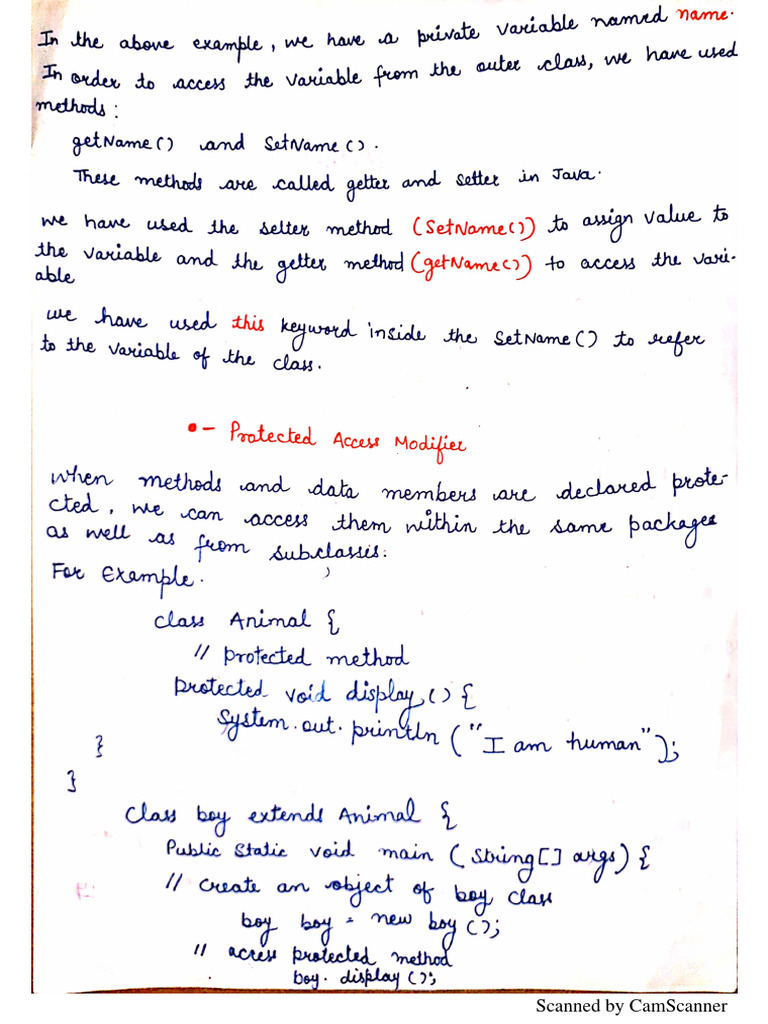 In the above example, we have a private variable named name.
In order to access the variable from the outer class, we have used
methods:
getName() and SetName().
These methods are called getter and setter in Java.
we have used the setter method (SetName()) to assign value to
the variable and the getter method (getName()) to access the vari-
able
we have used this keyword inside the SetName() to refer
to the variable of the class.
•- Protected Access Modifier
When methods and data members are declared prote-
cted, we can access them within the same packages
as well as from subclassis.
For Example.
class Animal {
// protected method
protected void display() {
System.out.println("I am human");
}
}
Class boy extends Animal {
Public Static void main (String[] args) {
// create an object of boy class
boy boy = new boy();
// access protected method
boy. display();
Scanned by CamScanner